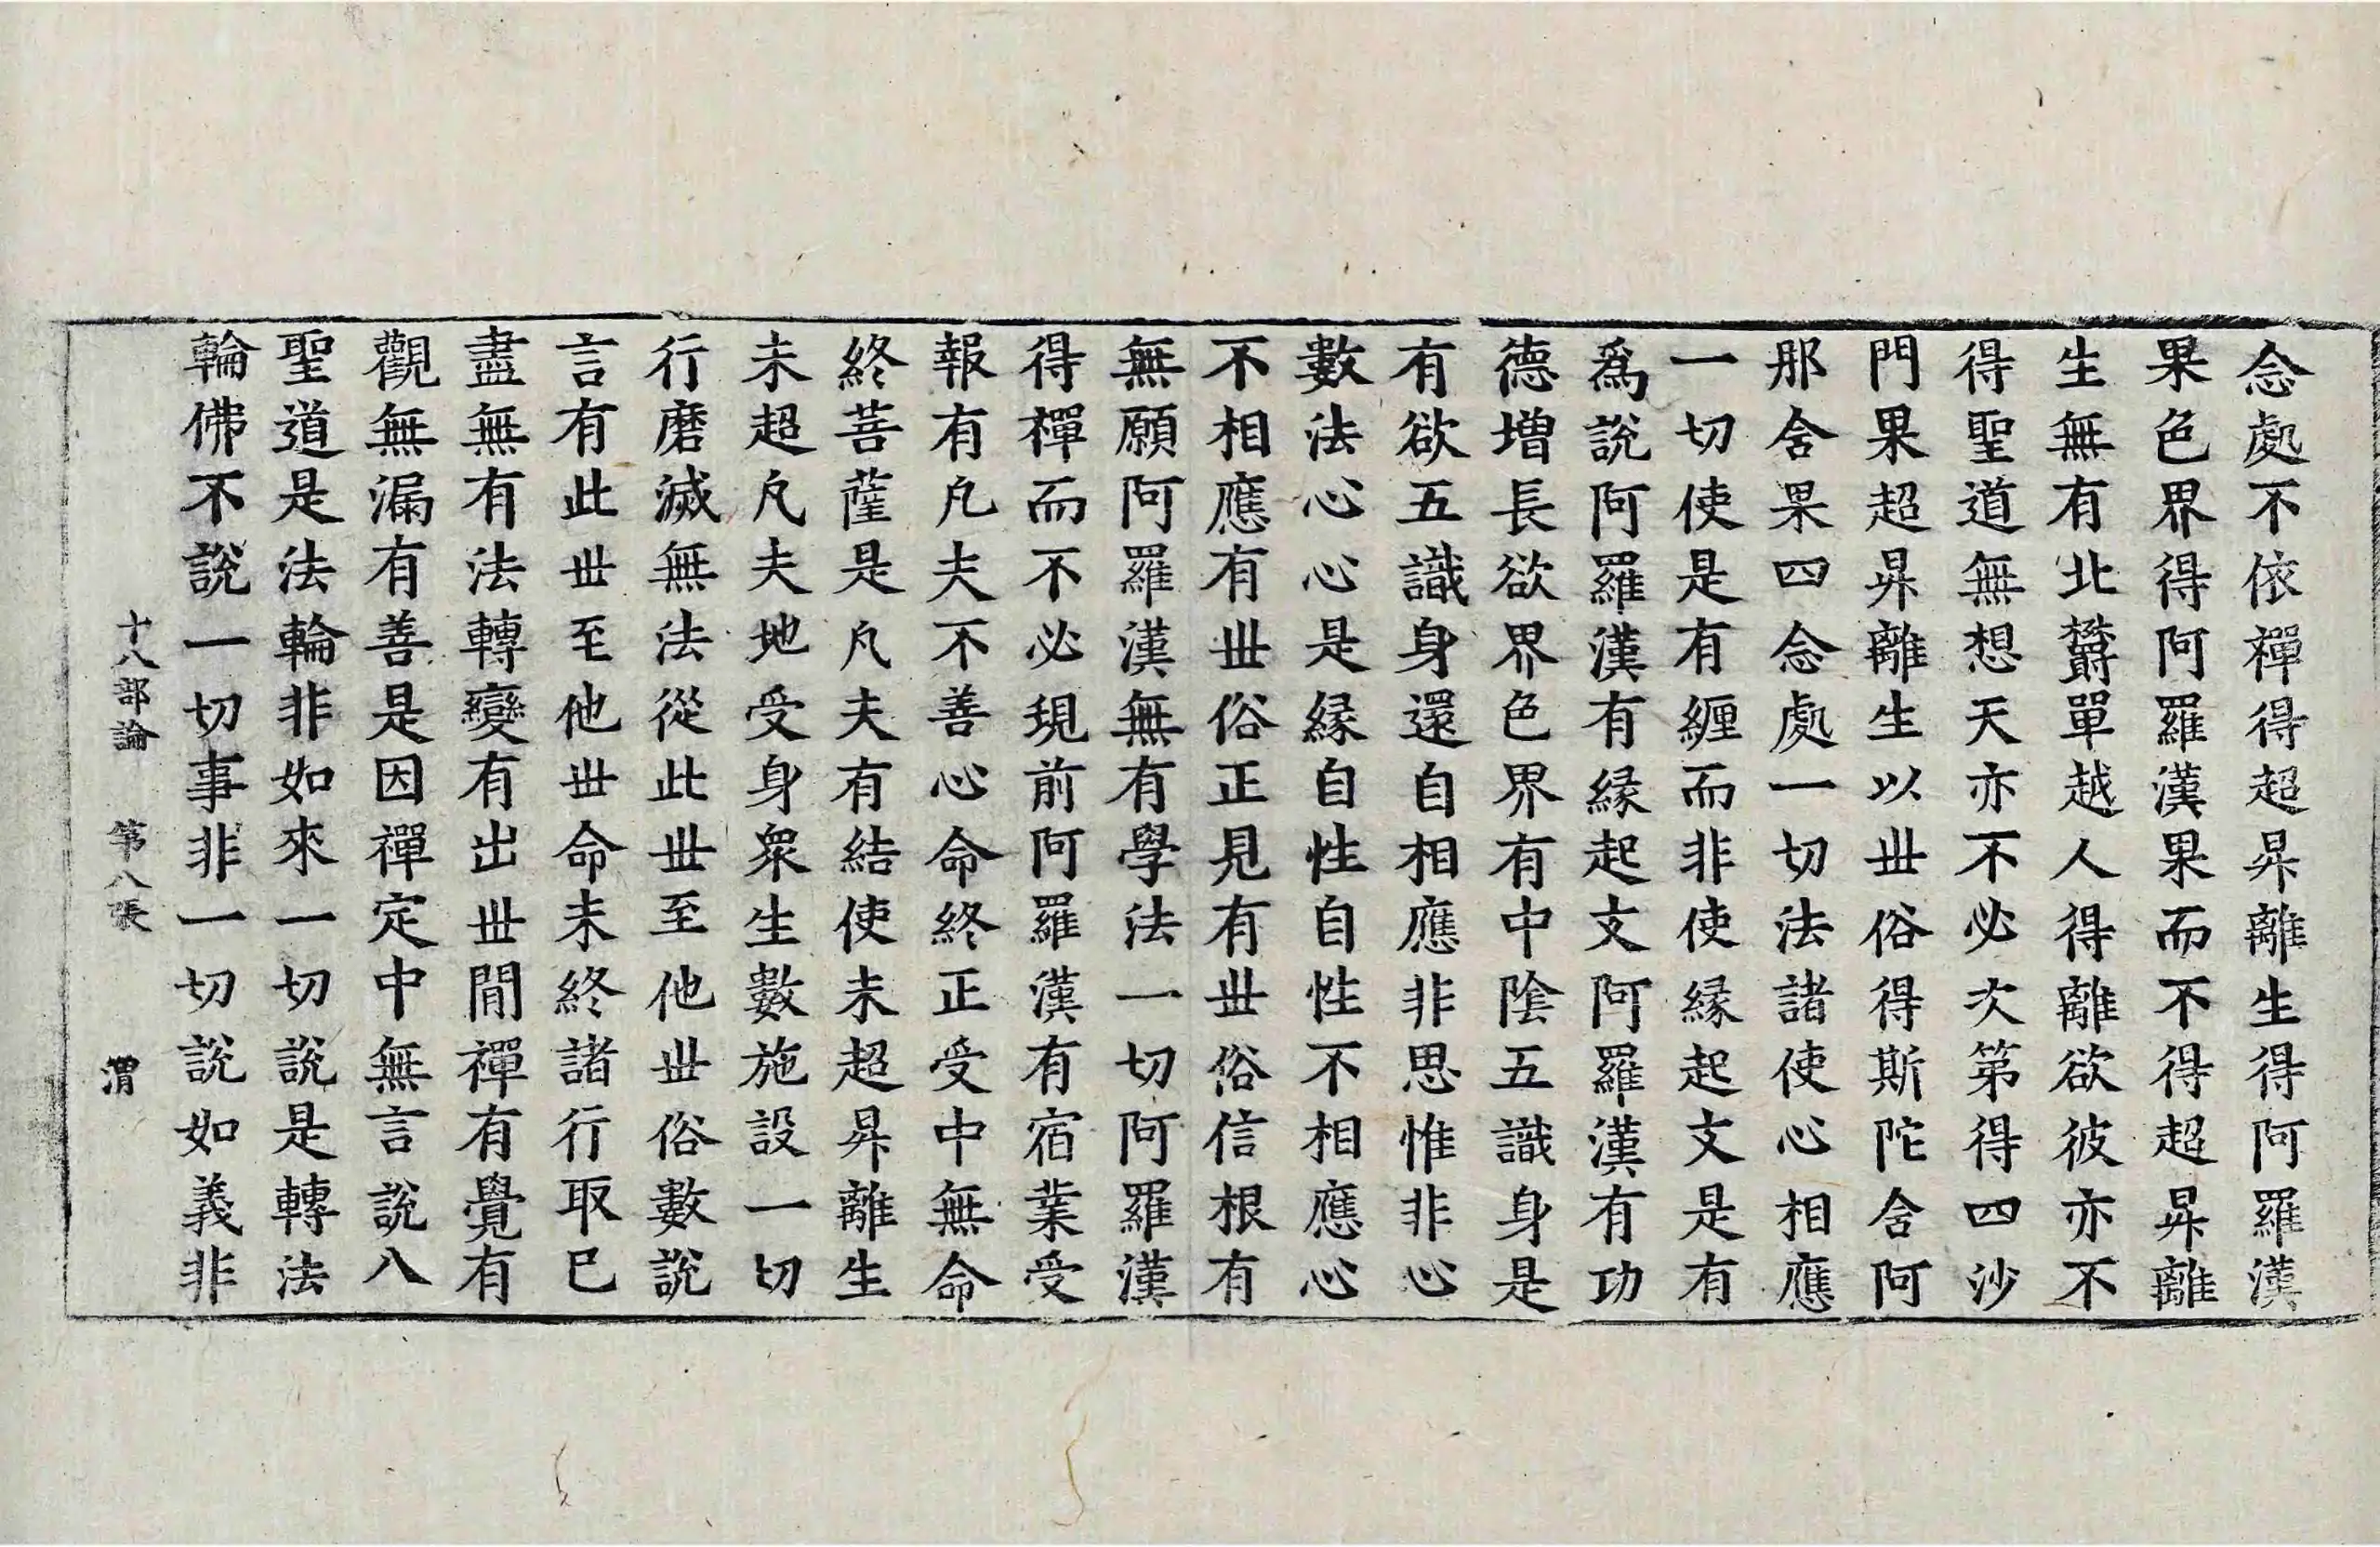 念處不依禪得超昇離生得阿羅漢
果色界得阿羅漢果而不得超昇離
生無有北欝單越人得離欲彼亦不
得聖道無想天亦不必次第得四沙
門果超昇離生以丗俗得斯陀舍阿
那舍果四念處一切法諸使心相應
一切使是有纒而非使縁起文是有
爲說阿羅漢有縁起文阿羅漢有功
德増長欲界色界有中陰五識身是
有欲五識身還自相應非思惟非心
數法心心是縁自性自性不相應心
不相應有丗俗正見有丗俗信根有
無願阿羅漢無有學法一切阿羅漢
得禪而不必現前阿羅漢有宿業受
報有凡夫不善心命終正受中無命
終菩薩是凡夫有結使未超昇離生
未超凡夫地受身衆生數施設一切
行磨滅無法從此丗至他丗俗數說
言有此丗至他丗命未終諸行取已
盡無有法轉變有出丗閒禪有覺有
觀無漏有善是因禪定中無言說八
聖道是法輪非如來一切說是轉法
輪佛不說一切事非一切說如義非
十八部論 第八張 渭